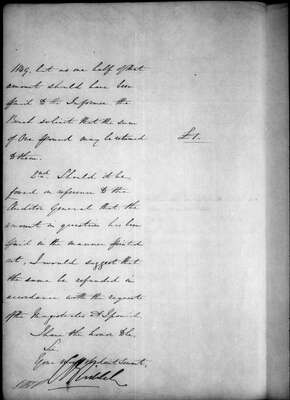 1849, but as one half of that
amount should have been
paid to the Informer the
Bench solicit that the sum
of One pound may be returned £1.
to them.
2nd. Should it be
found on reference to the
Auditor General that the
amount in question has been
paid in the manner pointed
out, I would suggest that
the same be refunded in
accordance with the request
of the Magistrates at Ipswich
I have the honor to be
Sir
Your obedient Servant,